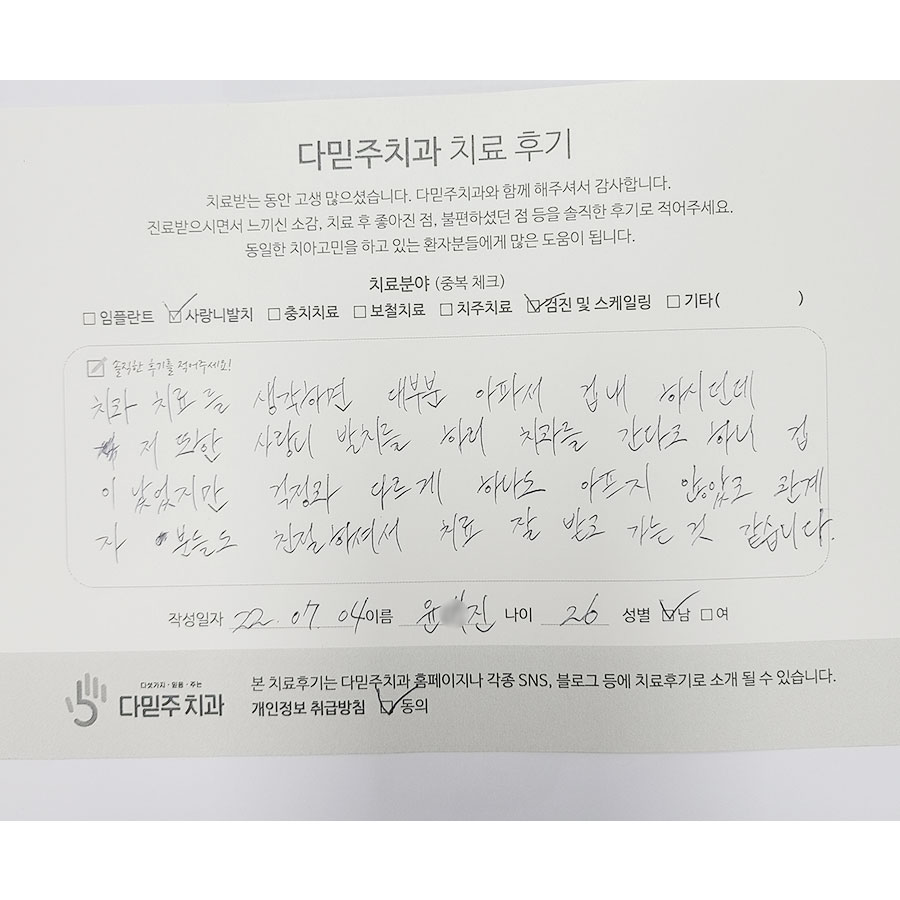 다믿주치과 치료 후기
치료받는 동안 고생 많으셨습니다. 다믿주치과와 함께 해주셔서 감사합니다.
진료받으시면서 느끼신 소감, 치료 후 좋아진 점, 불편하셨던 점 등을 솔직한 후기로 적어주세요.
동일한 치아고민을 하고 있는 환자분들에게 많은 도움이 됩니다.
치료분야 (중복 체크)
□ 임플란트 ☑ 사랑니발치 □ 충치치료 □ 보철치료 □ 치주치료 ☑ 검진 및 스케일링 □ 기타( )
솔직한 후기를 적어주세요!
치과 치료를 생각하면 대부분 아파서 겁내 하시던데
저 또한 사랑니 발치를 하러 치과를 간다고 하니 겁
이 났었지만 걱정과 다르게 하나도 아프지 않았고 관계
자 분들도 친절하셔서 치료 잘 받고 가는 것 같습니다.
작성일자 22. 07. 04 이름 윤 진 나이 26 성별 ☑남 □여
다섯가지·믿음·주는
다믿주치과
본 치료후기는 다믿주치과 홈페이지나 각종 SNS, 블로그 등에 치료후기로 소개 될 수 있습니다.
개인정보 취급방침 ☑ 동의